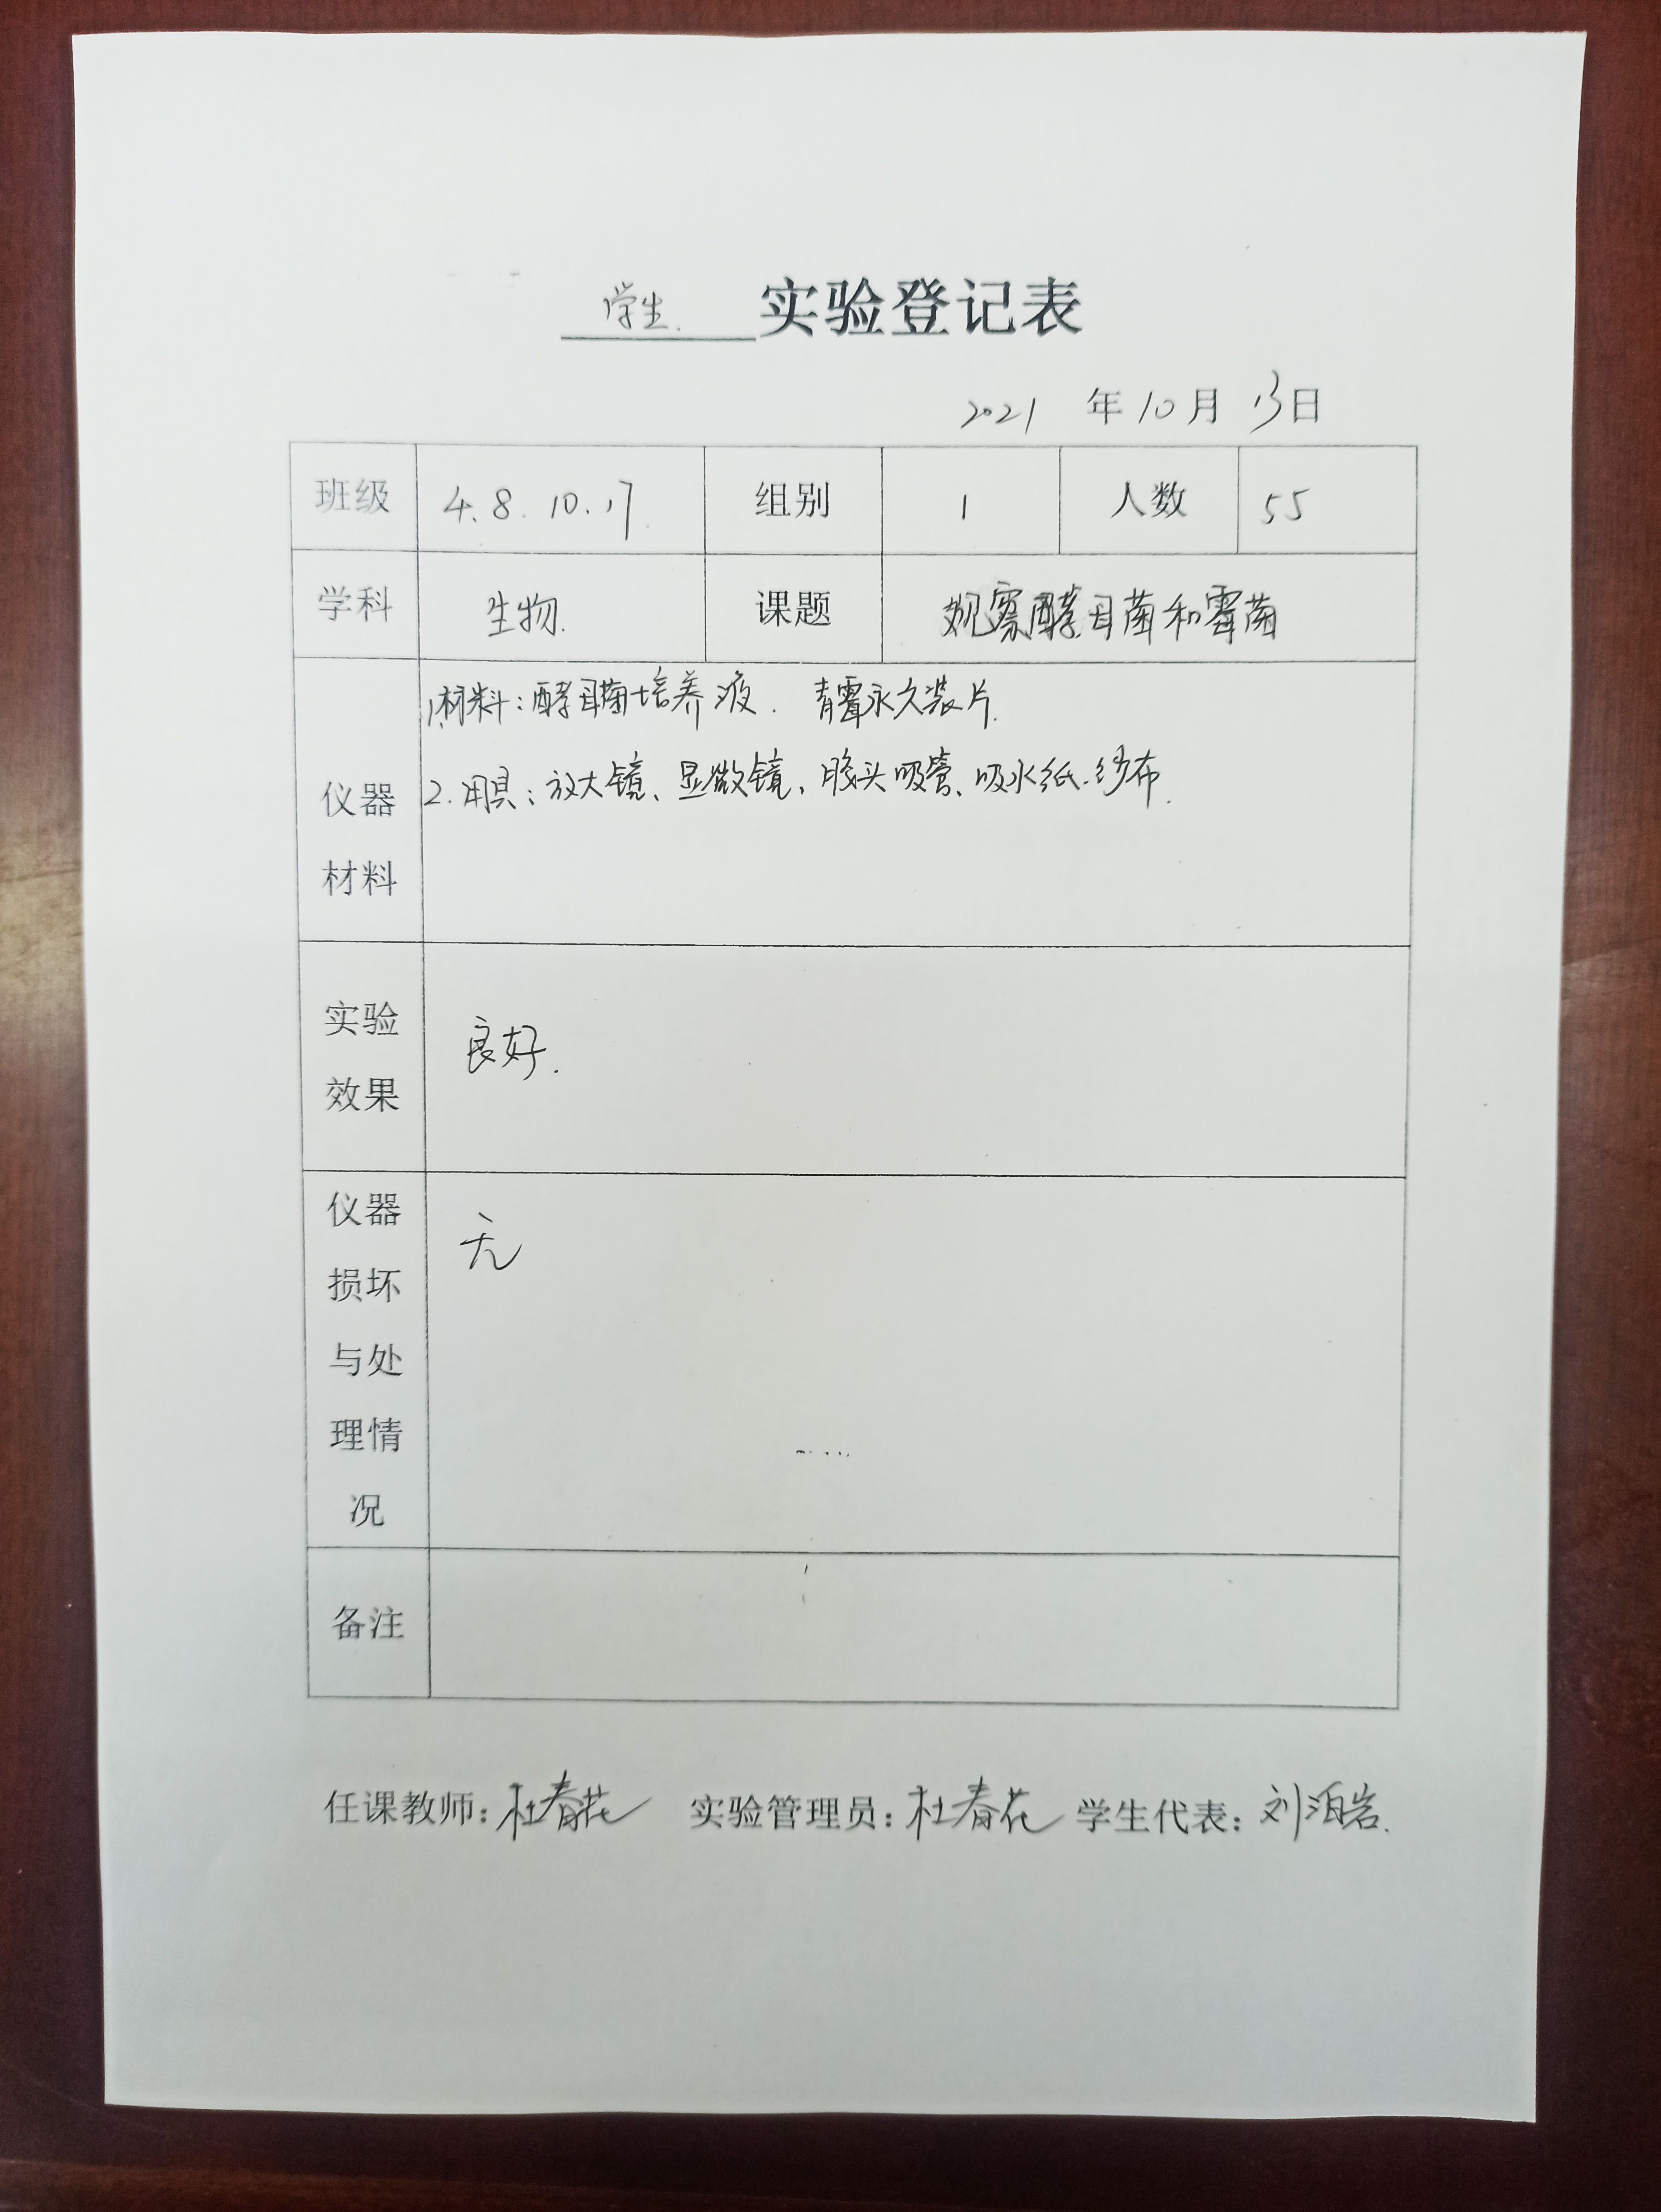 学生.实验登记表
2021 年 10 月 13 日
班级 4. 8. 10. 17. 组别 1 人数 55
学科 生物. 课题 观察酵母菌和霉菌
仪器材料
1.材料：酵母菌培养液. 青霉永久装片.
2.用具：放大镜、显微镜、胶头吸管、吸水纸.纱布.
实验效果 良好.
仪器损坏与处理情况 无
备注
任课教师：杜春花 实验管理员：杜春花 学生代表：刘泊岩.